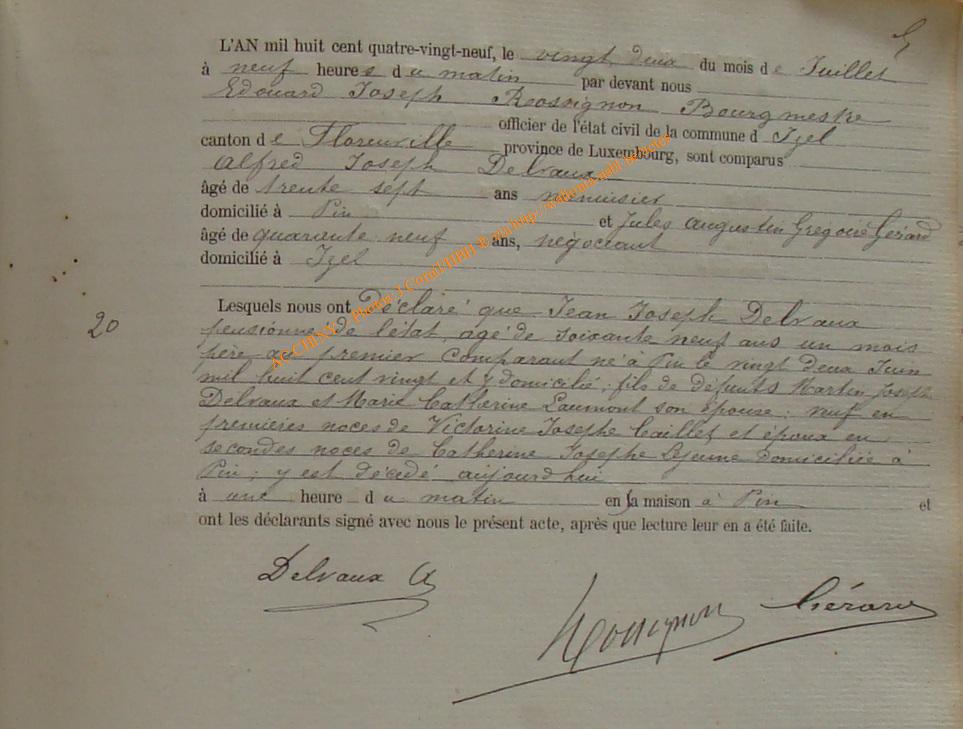 L'AN mil huit cent quatre-vingt-neuf, le vingt deux du mois de Juillet
à neuf heures du matin par devant nous
Edouard Joseph Rossignon Bourgmestre
officier de l'état civil de la commune d Izel
canton de Florenville province de Luxembourg, sont comparus
Alfred Joseph Delvaux
âgé de trente sept ans menuisier
domicilié à Pin et Jules Augustin Grégoire Gérard
âgé de quarante neuf ans, négociant
domicilié à Izel
Lesquels nous ont Déclaré que Jean Joseph Delvaux
20
pensionné de l'état, agé de soixante neuf ans un mois
père au premier comparant né à Pin le vingt deux Juin
mil huit cent vingt et y domicilié ; fils de défunts Martin Joseph
Delvaux et Marie Catherine Laumont son épouse ; veuf en
premières noces de Victorine Josephe Caillet et époux en
secondes noces de Catherine Josephe Lejeune domiciliée à
Pin ; y est décédé aujourd'hui
à une heure du matin en sa maison à Pin et
ont les déclarants signé avec nous le présent acte, après que lecture leur en a été faite.
Delvaux A
Rossignon Gérard